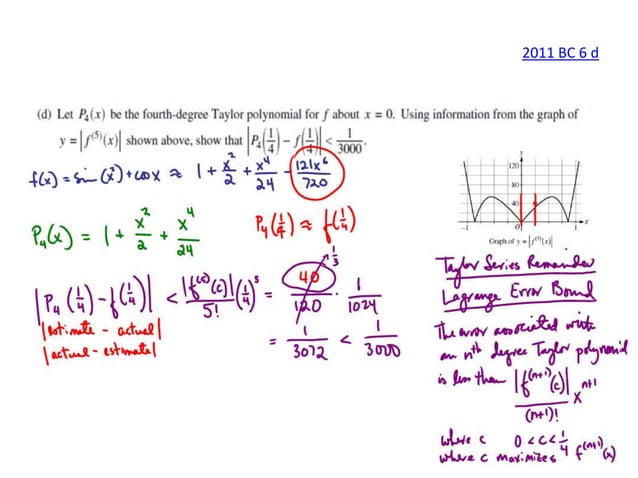 2011 BC 6 d
(d) Let P₄(x) be the fourth-degree Taylor polynomial for f about x = 0. Using information from the graph of
y = |f⁽⁵⁾(x)| shown above, show that |P₄(1/4) − f(1/4)| < 1/3000.
f(x) = sin(x²) + cos x ≈ 1 + x²/2 + x⁴/24 − 121x⁶/720
P₄(x) = 1 + x²/2 + x⁴/24
P₄(1/4) ≈ f(1/4)
|P₄(1/4) − f(1/4)| < |f⁽⁵⁾(c)|/5! (1/4)⁵ = 40/120 · 1/1024
1/3
|estimate − actual|
|actual − estimate|
= 1/3072 < 1/3000
y
120
80
40
−1 O 1 x
Graph of y = |f⁽⁵⁾(x)|
Taylor Series Remainder
Lagrange Error Bound
The error associated with
an nth degree Taylor polynomial
is less than |f⁽ⁿ⁺¹⁾(c)|/(n+1)! xⁿ⁺¹
where c 0 < c < 1/4
where c maximizes f⁽ⁿ⁺¹⁾(x)